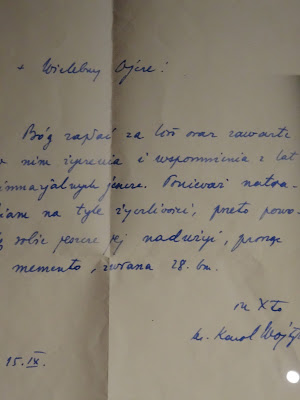 + Wielebny Ojcze!
Bóg zapłać za list oraz zawarte
w nim życzenia i wspomnienia z lat
gimnazjalnych jeszcze. Ponieważ
na tyle życzliwości, przeto
sobie jeszcze jej nadużyć, prosząc
memento, zwrana 28. bm.
in Xto
ks. Karol Wojty
15.IX.